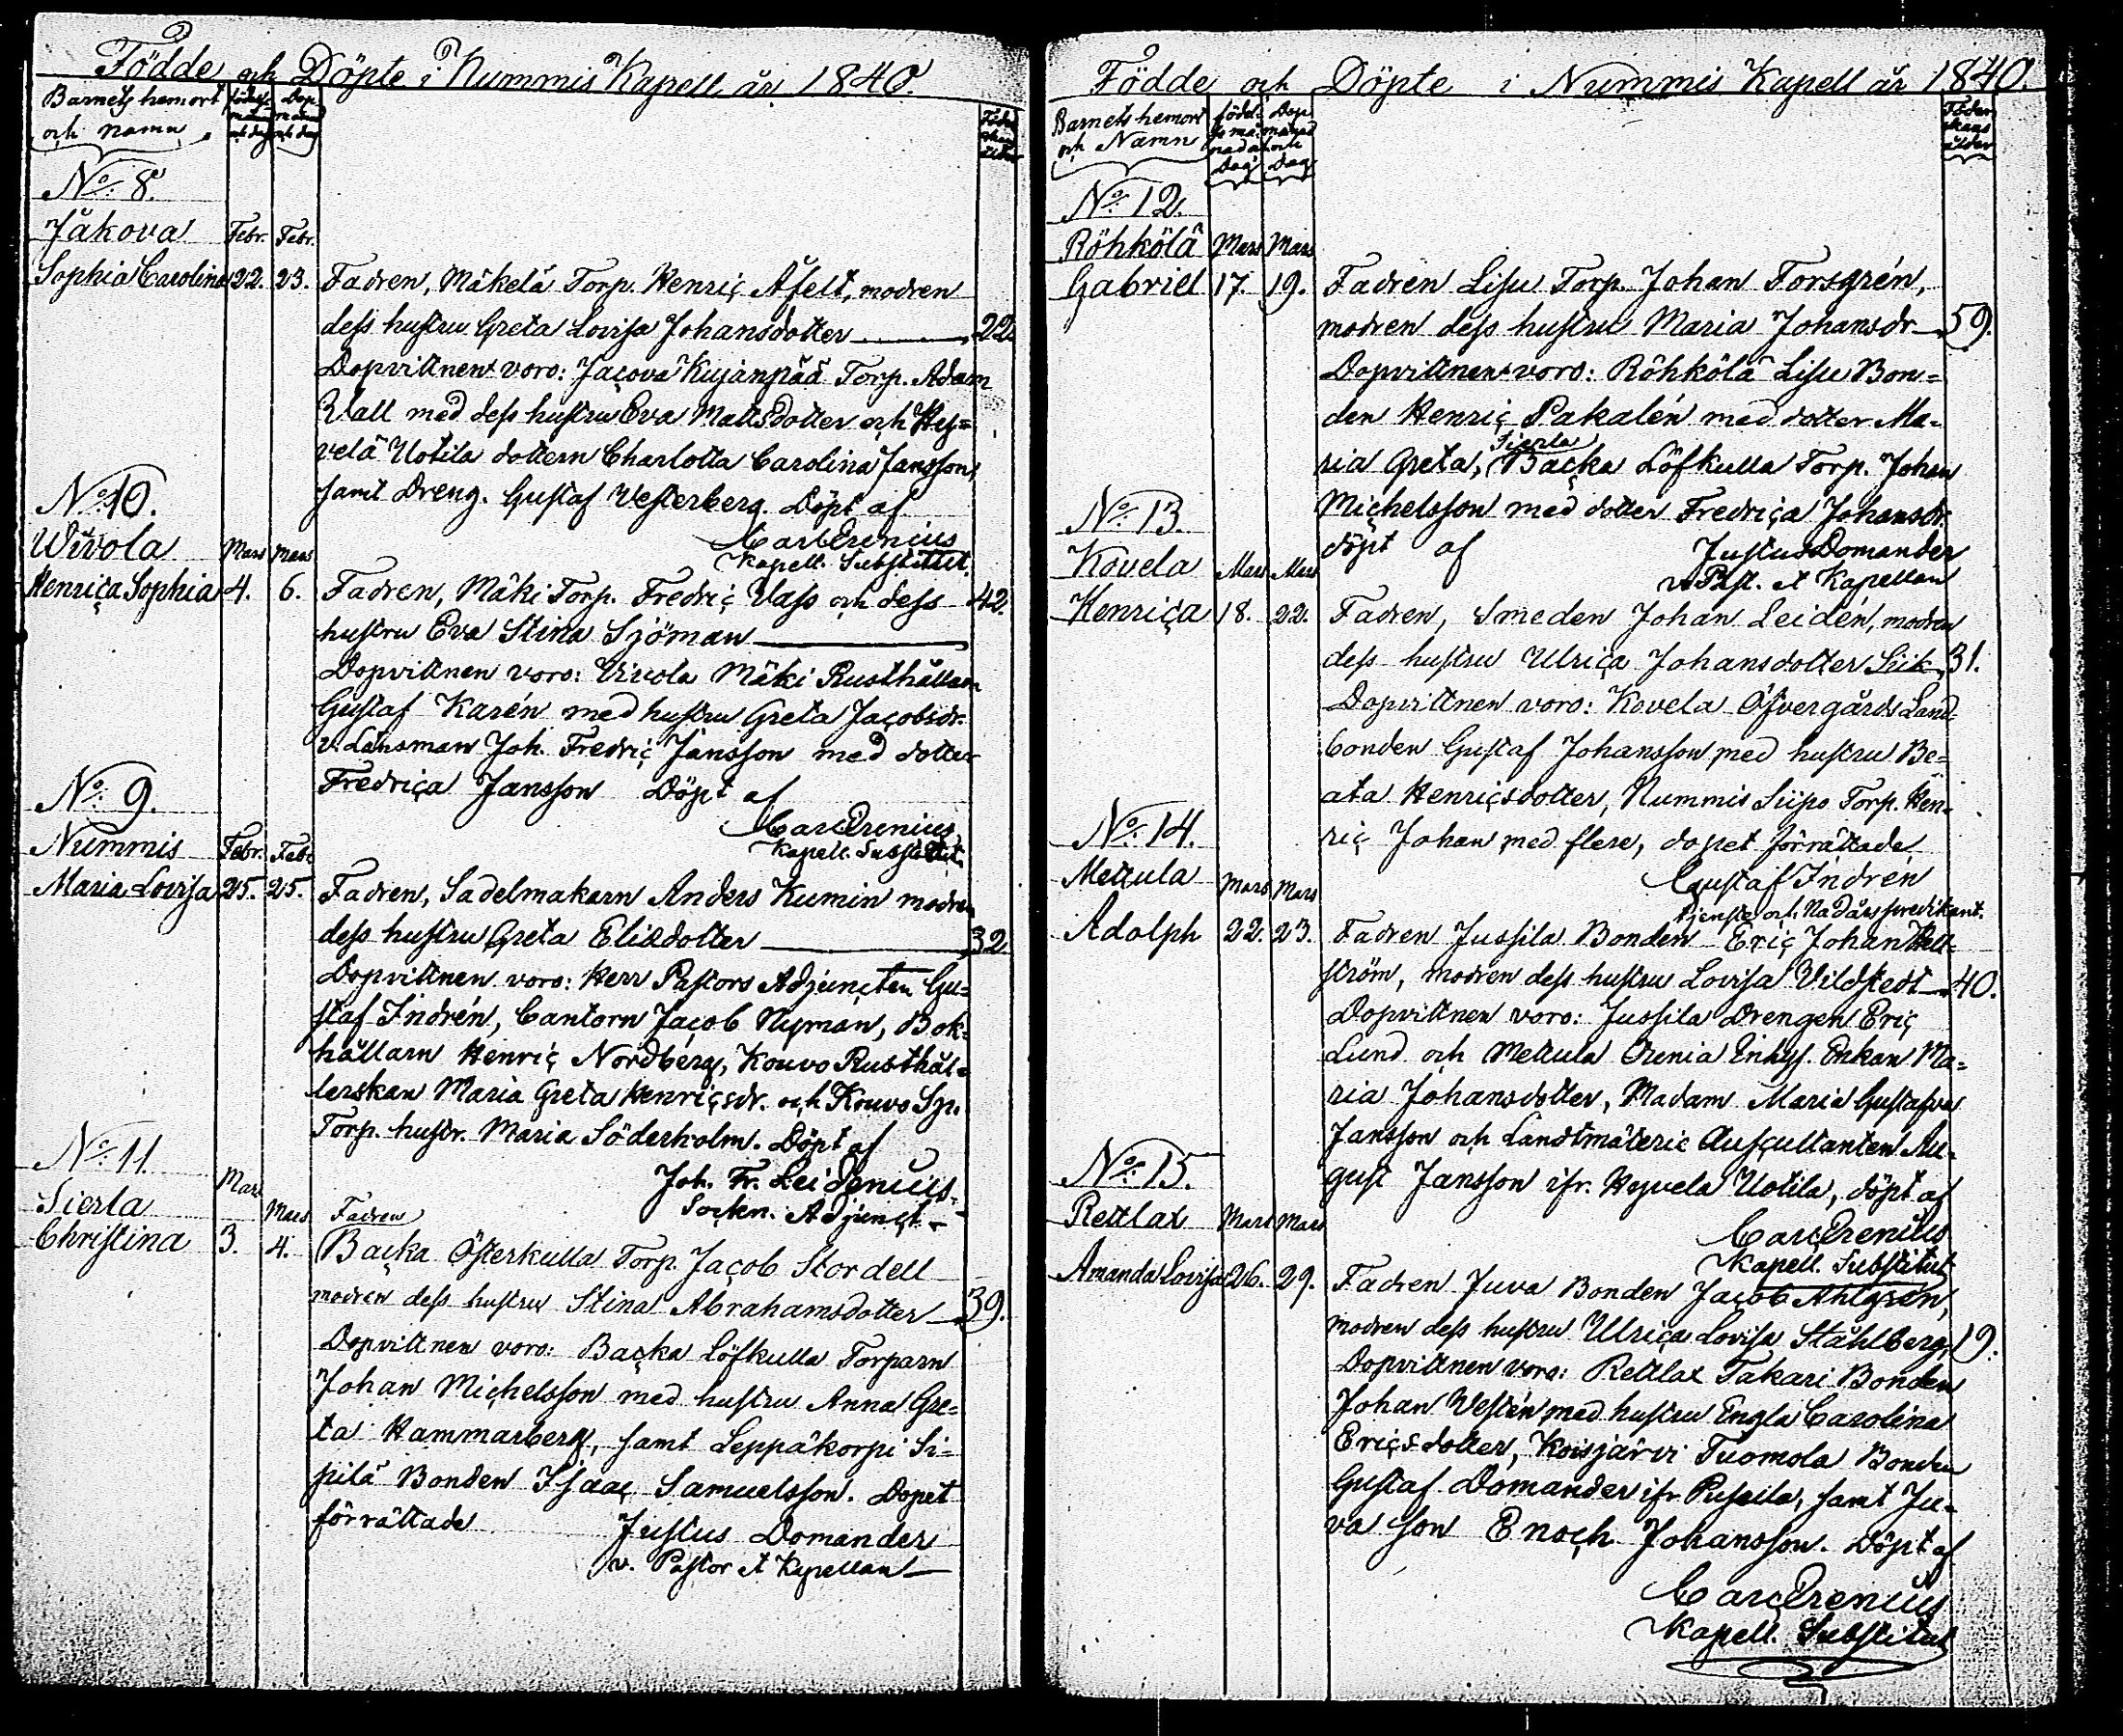 Födde och Döpte i Nummis Kapell år 1840.
Barnets hemort och namn
födelse månad och dag
Dop månad och dag
Föder skans ålder
No. 8.
Jåkova Febr. Febr.
Sophia Carolina 22. 23. Fadren, Mäkelä Torp. Henriç Åfelt, modren
dess hustru Greta Lovisa Johansdotter 22.
Dopvittnen voro: Jaçova Kujanpää Torp. Adam
Wall med dess hustru Eva Mattsdotter och Hey=
velä Uotila dottern Charlotta Carolina Jansson,
samt Dreng. Gustaf Vesterberg. Döpt af
Carl Erenius
Kapell. Substitut.
No. 10.
Wivola Mars Mars
Henriça Sophia 4. 6. Fadren, Mäki Torp. Fredriç Vass och dess 42.
hustru Eva Stina Sjöman
Dopvittnen voro: Vivola Mäki Rusthållarn
Gustaf Karén med hustru Greta Jaçobsdr.
v. Länsman Joh. Fredriç Jansson med dotter
Fredriça Jansson Döpt af
Carl Erenius
Kapell. Substitut.
No. 9.
Nummis Febr. Febr
Maria Lovisa 25. 25. Fadren, Sadelmakarn Anders Kumin modren
dess hustru Greta Elisdotter 32
Dopvittnen voro: Herr Pastors Adjunçten Gu=
staf Indrén, Cantorn Jaçob Nyman, Bok=
hållarn Henriç Nordberg, Kouvo Rusthål=
lerskan Maria Greta Henriçsdr. och Kouvo
Torp. hustr. Maria Söderholm. Döpt af
Joh. Fr. Leidenius.
Soçkn. Adjunçt.
No. 11.
Sierla Mars Mars Fadren
Christina 3. 4. Baçka Österkulla Torp. Jaçob Stordell
modren dess hustru Stina Abrahamsdotter 39.
Dopvittnen voro: Baçka Löfkulla Torparn
Johan Miçhelsson med hustru Anna Gre=
ta Hammarberg, samt Leppäkorpi Si=
pilä Bonden Isaaç Samuelsson. Dopet
förrättade Justus Domander
v. Pastor et Kapellan
Födde och Döpte i Nummis Kapell år 1840.
Barnets hemort och Namn
födel= se må= nad och Dag
Dop månad och Dag
Föder skans ålder
No. 12.
Röhkölä Mars Mars
Gabriel 17. 19. Fadren Lisu Torp. Johan Forsgrén,
modren dess hustru Maria Johansdr 59.
Dopvittnen voro: Röhkölä Lisu Bon=
den Henriç Pakalén med dotter Ma=
ria Greta, Sierla Baçka Löfkulla Torp. Johan
Miçhelsson med dotter Fredriça Johansdr.
döpt af Justus Domander
v. Pst. et Kapellan
No. 13.
Kovela Mars Mars
Henriça 18. 22. Fadren, Smeden Johan Leidén, modren
dess hustru Ulriça Johansdotter Siik 31.
Dopvittnen voro: Kovela Öfvergårds Land=
bonden Gustaf Johansson med hustru Be=
ata Henriçsdotter, Nummis Siipo Torp. Hen=
riç Johan med flere, dopet förrättade,
Gustaf Indrén
tjenste och Nadårspredikant.
No. 14.
Mettula Mars Mars
Adolph 22. 23. Fadren Jussila Bonden Eriç Johan Hell=
ström, modren dess hustru Lovisa Vildstedt 40.
Dopvittnen voro: Jussila Drengen Eriç
Lund och Mettula Inhys. Enkan Ma=
ria Johansdotter, Madam Maria Gustafva
Jansson och Landtmäterie Ausçultanten Au=
gust Jansson ifr. Heyvela Uotila, döpt af
Carl Erenius
Kapell. Substitut
No. 15.
Rettlax Mars Mars
Amanda Lovisa 26. 29. Fadren Juva Bonden Jaçob Ahlgrén,
modren dess hustru Ulriça Lovisa Ståhlberg, 19.
Dopvittnen voro: Rettlax Takari Bonden
Johan Vestén med hustru Engla Carolina
Eriçsdotter, Koisjärvi Tuomola Bonden
Gustaf Domander ifr Pusula, samt Ju=
va son Enoçh Johansson. Döpt af
Carl Erenius
Kapell. Substitut